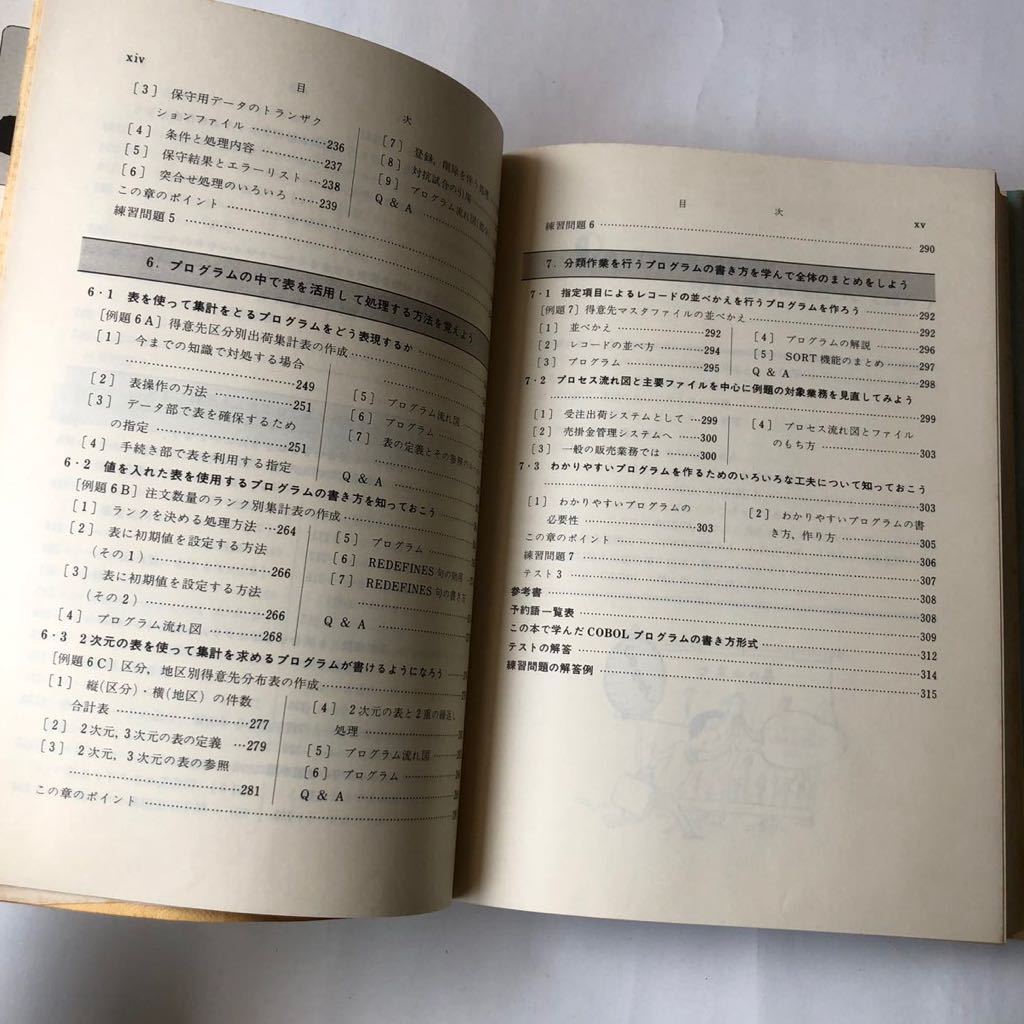 xiv
目 次
[3] 保守用データのトランザク
ションファイル ……………236
[4] 条件と処理内容 …………237
[5] 保守結果とエラーリスト …238
[6] 突合せ処理のいろいろ …239
この章のポイント
練習問題 5
[7] 登録,削除を伴う処理
[8] 対抗試合の引用
[9] プログラム流れ図
Q & A
6. プログラムの中で表を活用して処理する方法を覚えよう
6・1 表を使って集計をとるプログラムをどう表現するか
[例題6A] 得意先区分別出荷集計表の作成
[1] 今までの知識で対処する場合
……………249
[2] 表操作の方法 ……………251
[3] データ部で表を確保するため
の指定 ……………251
[4] 手続き部で表を利用する指定
[5] プログラム流れ図
[6] プログラム
[7] 表の定義とその参照の
Q & A
6・2 値を入れた表を使用するプログラムの書き方を知っておこう
[例題6B] 注文数量のランク別集計表の作成
[1] ランクを決める処理方法 …264
[2] 表に初期値を設定する方法
(その1) ……………266
[3] 表に初期値を設定する方法
(その2) ……………266
[4] プログラム流れ図 …………268
[5] プログラム
[6] REDEFINES 句の効用
[7] REDEFINES 句の書き方
Q & A
6・3 2次元の表を使って集計を求めるプログラムが書けるようになろう
[例題6C] 区分,地区別得意先分布表の作成
[1] 縦(区分)・横(地区) の件数
合計表 ……………277
[2] 2次元,3次元の表の定義 …279
[3] 2次元,3次元の表の参照
……………281
[4] 2次元の表と2重の繰返し
処理
[5] プログラム流れ図
[6] プログラム
Q & A
この章のポイント
目 次
xv
練習問題 6 ……………290
7. 分類作業を行うプログラムの書き方を学んで全体のまとめをしよう
7・1 指定項目によるレコードの並べかえを行うプログラムを作ろう ……………292
[例題7] 得意先マスタファイルの並べかえ ……………292
[1] 並べかえ ……………292
[2] レコードの並べ方 …………294
[3] プログラム ……………295
[4] プログラムの解説 …………296
[5] SORT 機能のまとめ ………297
Q & A ……………298
7・2 プロセス流れ図と主要ファイルを中心に例題の対象業務を見直してみよう
……………299
[1] 受注出荷システムとして …299
[2] 売掛金管理システムへ ……300
[3] 一般の販売業務では ………300
[4] プロセス流れ図とファイル
のもち方 ……………303
7・3 わかりやすいプログラムを作るためのいろいろな工夫について知っておこう
……………303
[1] わかりやすいプログラムの
必要性 ……………303
[2] わかりやすいプログラムの書
き方,作り方 ……………305
この章のポイント ……………306
練習問題 7 ……………307
テスト 3 ……………308
参考書 ……………308
予約語一覧表 ……………309
この本で学んだ COBOL プログラムの書き方形式 ……………312
テストの解答 ……………314
練習問題の解答例 ……………315